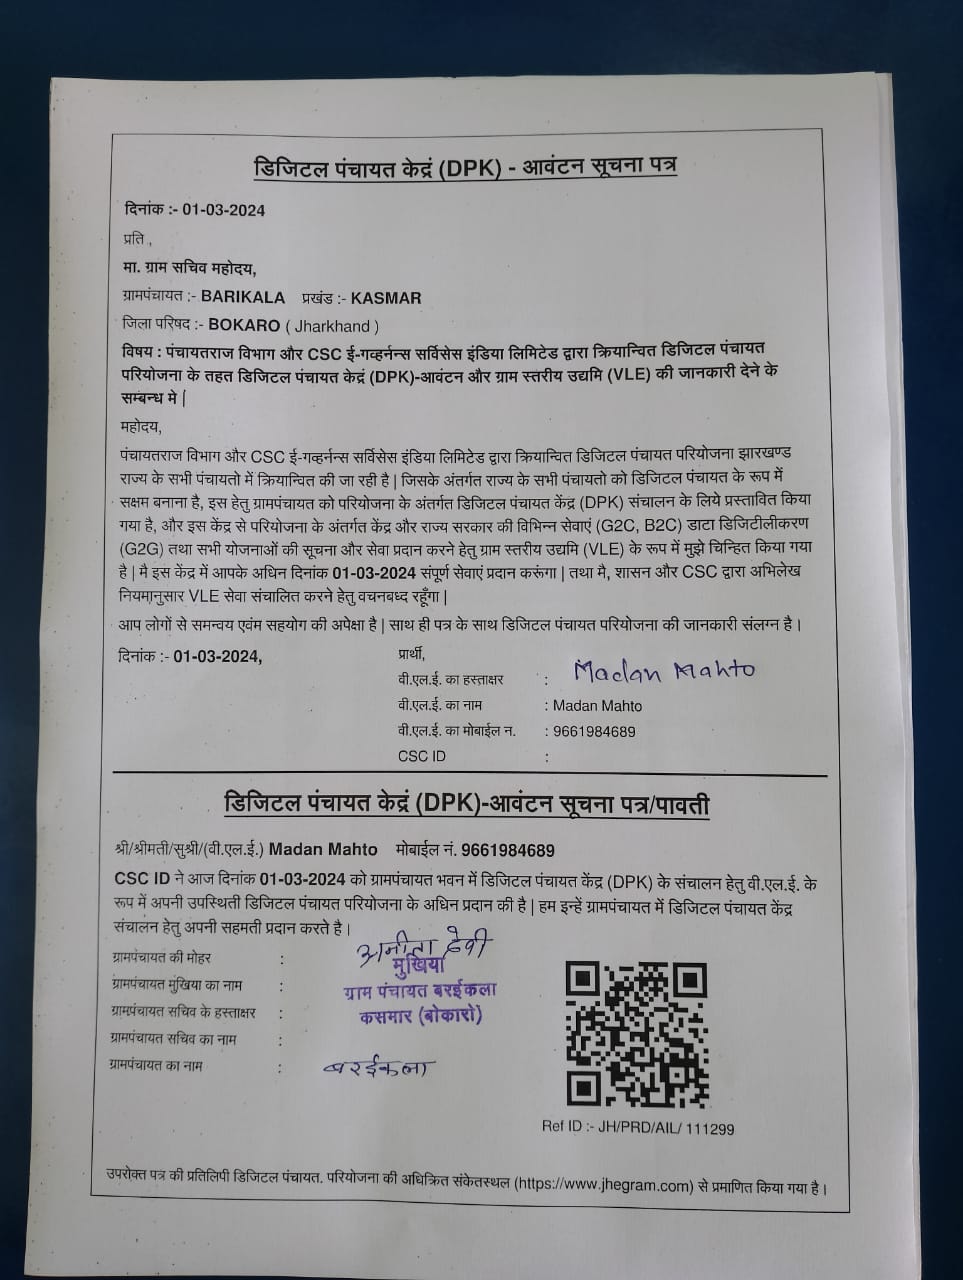 डिजिटल पंचायत केद्रं (DPK) - आवंटन सूचना पत्र
दिनांक :- 01-03-2024
प्रति ,
मा. ग्राम सचिव महोदय,
ग्रामपंचायत :- BARIKALA प्रखंड :- KASMAR
जिला परिषद :- BOKARO ( Jharkhand )
विषय : पंचायतराज विभाग और CSC ई-गव्हर्नन्स सर्विसेस इंडिया लिमिटेड द्वारा क्रियान्वित डिजिटल पंचायत
परियोजना के तहत डिजिटल पंचायत केद्रं (DPK)-आवंटन और ग्राम स्तरीय उद्यमि (VLE) की जानकारी देने के
सम्बन्ध मे |
महोदय,
पंचायतराज विभाग और CSC ई-गव्हर्नन्स सर्विसेस इंडिया लिमिटेड द्वारा क्रियान्वित डिजिटल पंचायत परियोजना झारखण्ड
राज्य के सभी पंचायतो में क्रियान्वित की जा रही है | जिसके अंतर्गत राज्य के सभी पंचायतो को डिजिटल पंचायत के रूप में
सक्षम बनाना है, इस हेतु ग्रामपंचायत को परियोजना के अंतर्गत डिजिटल पंचायत केंद्र (DPK) संचालन के लिये प्रस्तावित किया
गया है, और इस केंद्र से परियोजना के अंतर्गत केंद्र और राज्य सरकार की विभिन्न सेवाएं (G2C, B2C) डाटा डिजिटीलीकरण
(G2G) तथा सभी योजनाओं की सूचना और सेवा प्रदान करने हेतु ग्राम स्तरीय उद्यमि (VLE) के रूप में मुझे चिन्हित किया गया
है | मै इस केंद्र में आपके अधिन दिनांक 01-03-2024 संपूर्ण सेवाएं प्रदान करूंगा | तथा मै, शासन और CSC द्वारा अभिलेख
नियमानुसार VLE सेवा संचालित करने हेतु वचनबध्द रहूँगा |
आप लोगों से समन्वय एवंम सहयोग की अपेक्षा है | साथ ही पत्र के साथ डिजिटल पंचायत परियोजना की जानकारी संलग्न है।
दिनांक :- 01-03-2024,
प्रार्थी,
वी.एल.ई. का हस्ताक्षर : Madan Mahto
वी.एल.ई. का नाम : Madan Mahto
वी.एल.ई. का मोबाईल न. : 9661984689
CSC ID :
डिजिटल पंचायत केद्रं (DPK)-आवंटन सूचना पत्र/पावती
श्री/श्रीमती/सुश्री/(वी.एल.ई.) Madan Mahto मोबाईल नं. 9661984689
CSC ID ने आज दिनांक 01-03-2024 को ग्रामपंचायत भवन में डिजिटल पंचायत केंद्र (DPK) के संचालन हेतु वी.एल.ई. के
रूप में अपनी उपस्थिती डिजिटल पंचायत परियोजना के अधिन प्रदान की है | हम इन्हें ग्रामपंचायत में डिजिटल पंचायत केंद्र
संचालन हेतु अपनी सहमती प्रदान करते है।
अनीता देवी
ग्रामपंचायत की मोहर : मुखिया
ग्रामपंचायत मुखिया का नाम : ग्राम पंचायत बरईकला
ग्रामपंचायत सचिव के हस्ताक्षर : कसमार (बोकारो)
ग्रामपंचायत सचिव का नाम :
ग्रामपंचायत का नाम : बरईकला
Ref ID :- JH/PRD/AIL/ 111299
उपरोक्त पत्र की प्रतिलिपी डिजिटल पंचायत. परियोजना की अधिक्रित संकेतस्थल (https://www.jhegram.com) से प्रमाणित किया गया है।